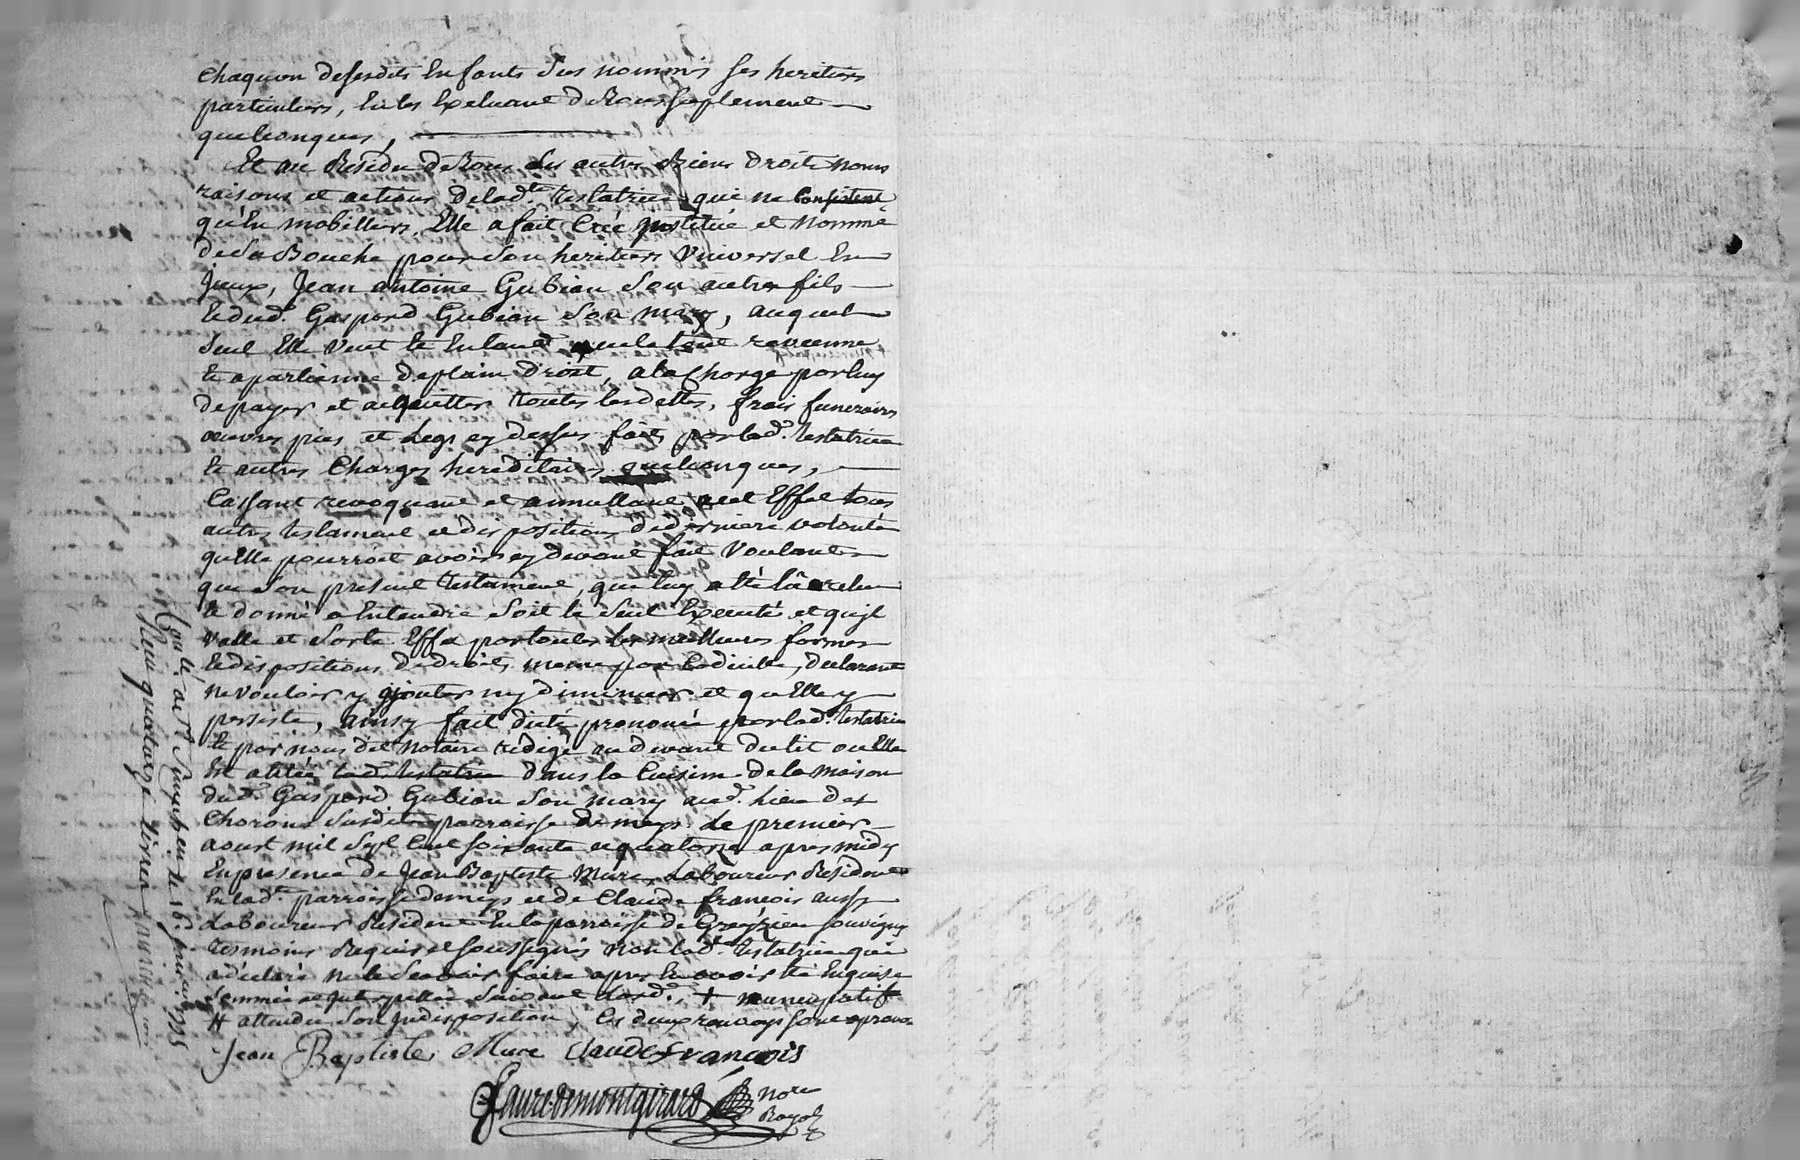 chaqu'un desesdits Enfants sus nommés ses heritiers
particuliers, En les Excluant de tous suplement
quelconques,
Et au Residu de tous les autres Biens droits noms
raisons et actions de lad.te testatrice qui ne Consistent
qu'En mobilliers, Elle a fait Créé institué et Nommé
de sa Bouche pour son heritiers Universel En
Jceux, Jean antoine Gubian son autre fils
et dud. Gaspard Gubian son mary, auquel
seul Elle veut et Entend que le tout revienne
et apartienne de plain droit, a la Charge par luy
de payer et acquitter toutes les dettes, frais funeraires
œuvres pies et Legs cy dessus faits par lad.e testatrice
et autres Charges hereditaires quelconques,
Cassant revoquant et annullant Effet tous
autres testament et dispositions de derniere volonté
qu'Elle pourroit avoir cy devant fait Voulant
que son present testament, que luy a été lû relu
et donné a Entendre soit le seul Executé et qu'il
valle et sorte Effet par toutes les meilleures formes
et dispositions de droit, meme par Codicille, declarant
ne vouloir y ajouter ny diminuer et qu'Elle y
persiste, ainsy fait dicté prononcé par lad.e testatrice
et par nous dit Notaire rédigé au devant du lit ou Elle
Est alitée lad.e testatrice dans la Cuisine de la maison
dud. Gaspard Gubian son mary aud. lieu des
Chorons susdite parroisse de meys Le premier
aoust mil sept Cent soixante et quatorze apres midy
En presence de Jean Baptiste Mure, Laboureur Resident
En lad.te parroisse de meys et de Claude françois aussy
Laboureur Resident En la parroisse de Grezieu souvigny
tesmoins Requis et soussignés Non lad.e testatrice qui
a declaré ne le sçavoir faire apres En avoir été Enquise
sommée et Interpellée suivant Lord.e, + nuncupatif
# attendu son Jndisposition, Les deux renvoys sont aprouvé
Jean Baptiste Mure Claude François
Faure de montgirard Not.re
Royal
Con.lé a S.t Simphorien le 16. 1775
Reçu quatorze livres